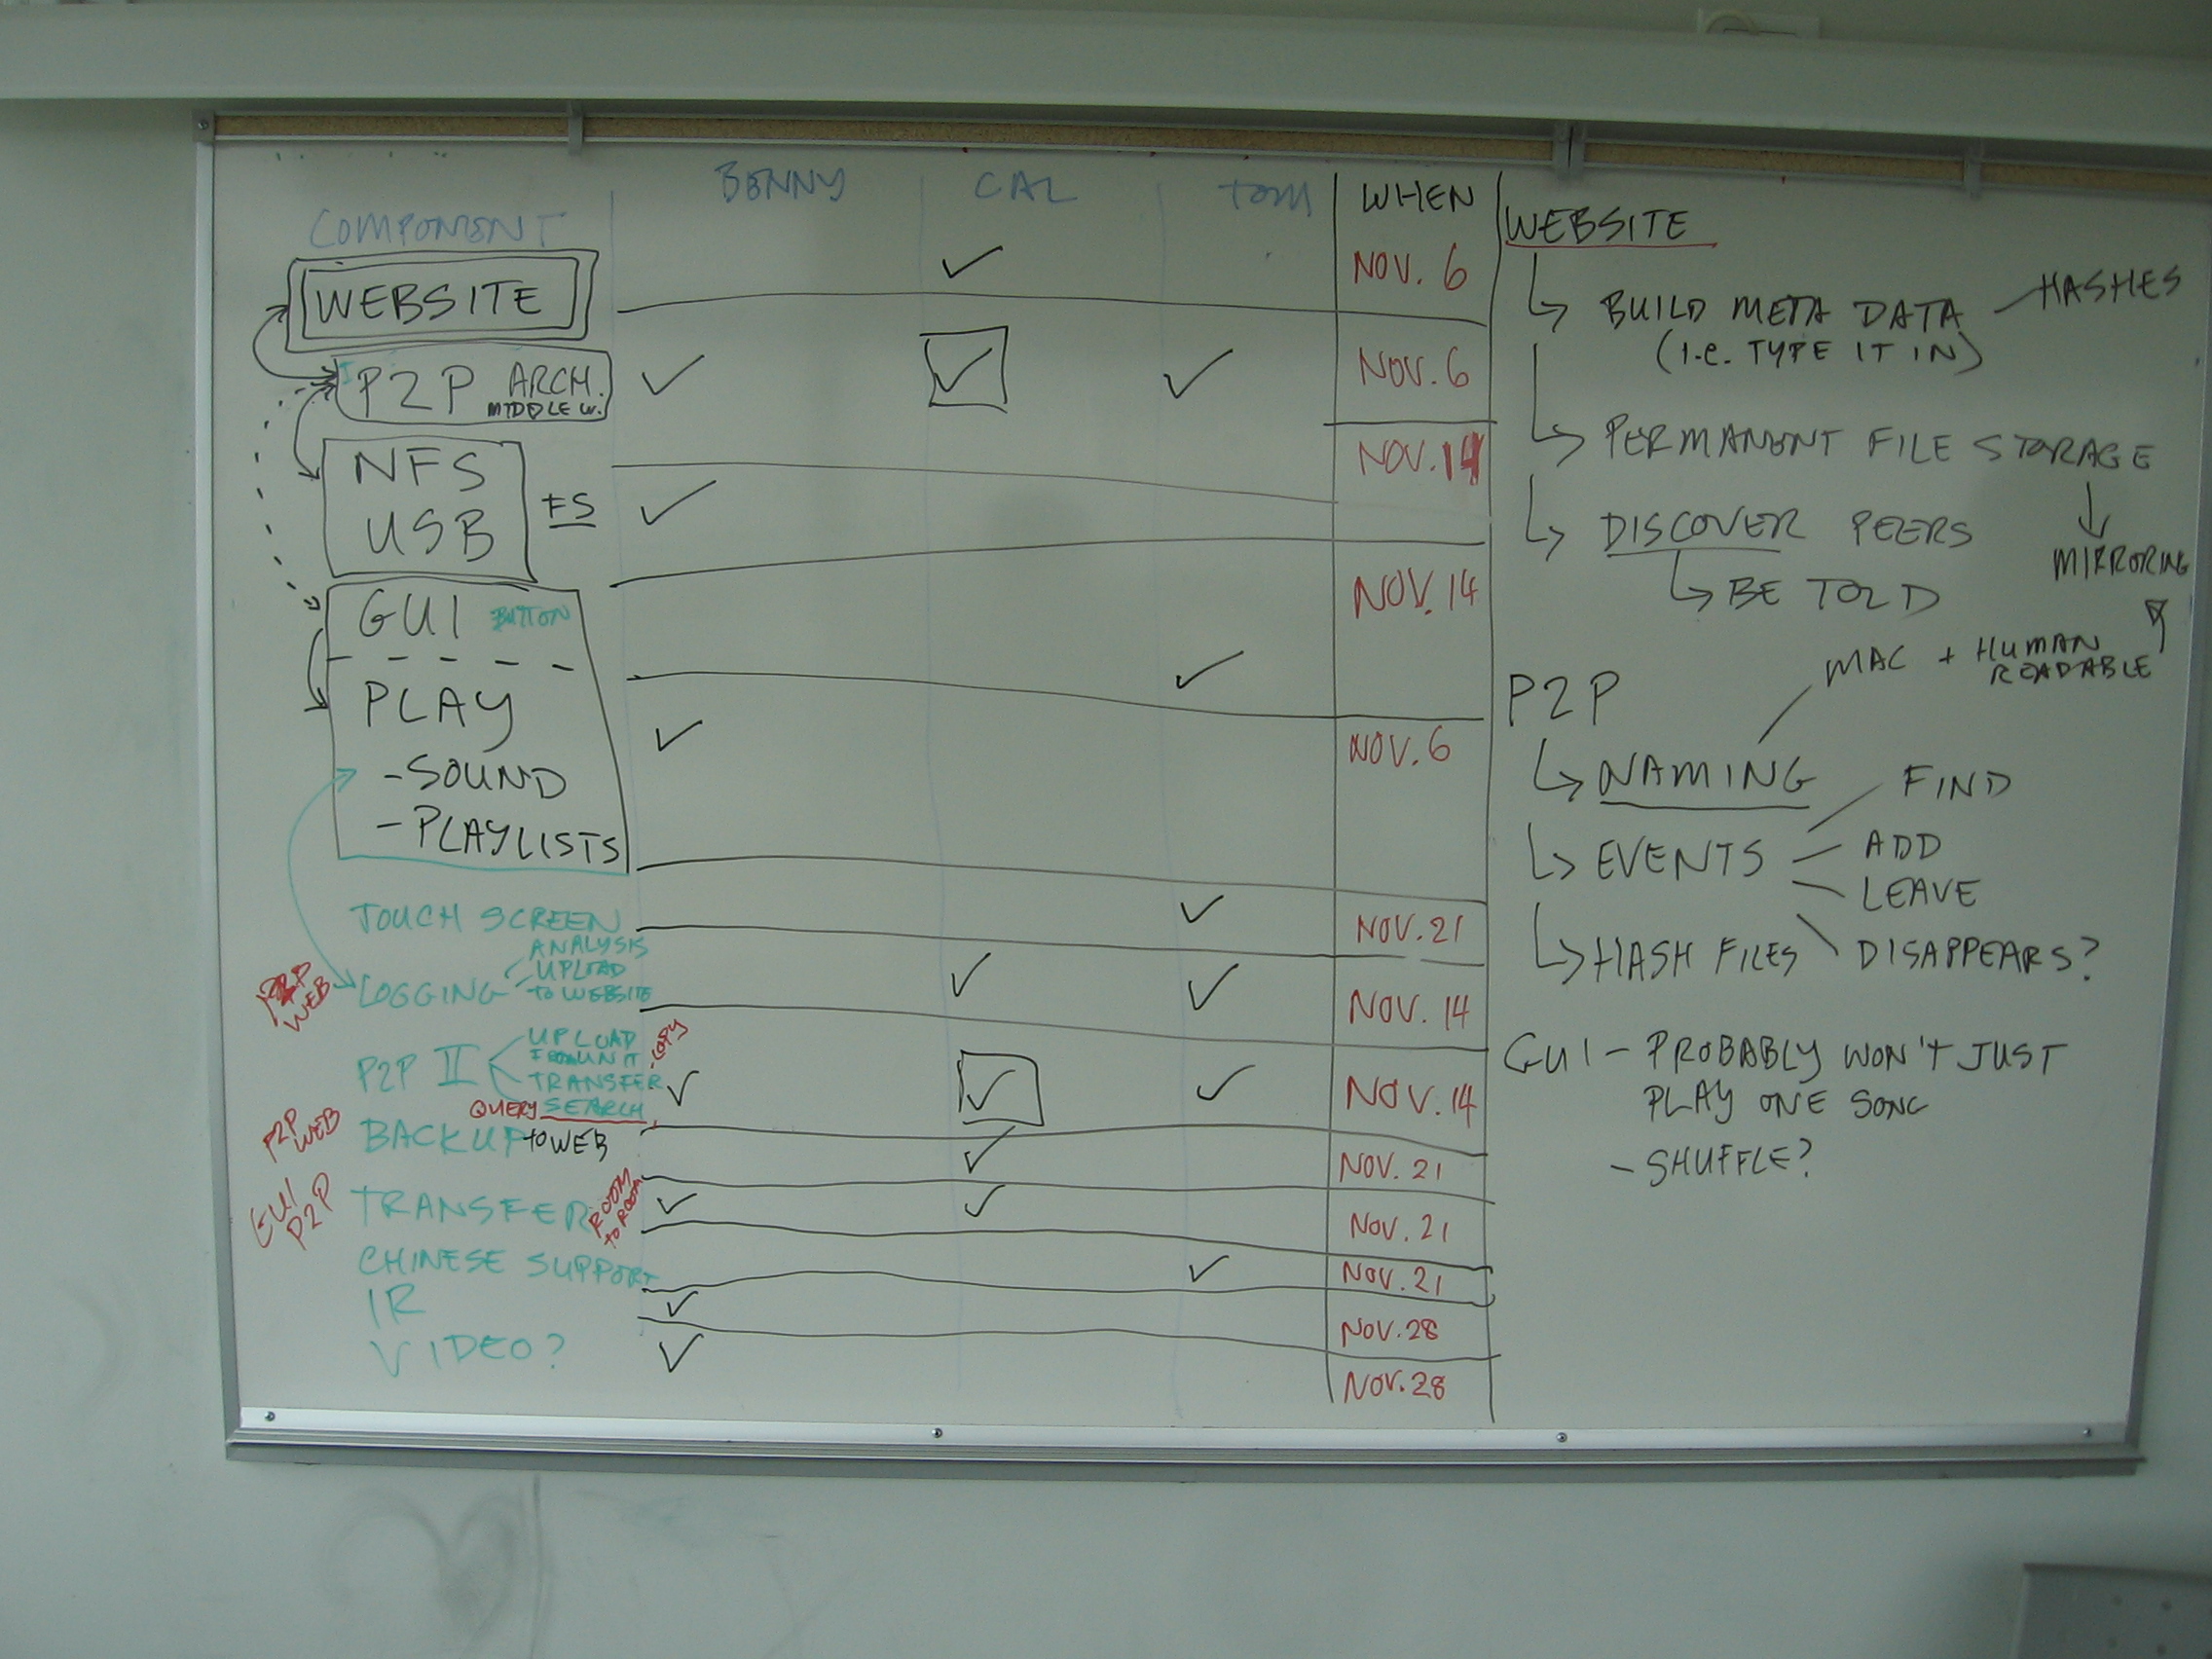 COMPONENT BENNY CAL TOM WHEN
WEBSITE ✓ NOV. 6
P2P ARCH. ✓ ✓ ✓ NOV. 6
MIDDLE W.
NFS NOV. 14
USB FS ✓
GUI BUTTON ✓ NOV. 14
PLAY ✓ NOV. 6
- SOUND
- PLAYLISTS
TOUCH SCREEN ✓ NOV. 21
P2P WEB
LOGGING ✓ ✓ NOV. 14
ANALYSIS
UPLOAD
TO WEBSITE
P2P II ✓ ✓ ✓ NOV. 14
UPLOAD
FROM UNIT
TRANSFER
- COPY
QUERY SEARCH
P2P WEB
BACKUP TO WEB ✓ NOV. 21
GUI P2P
TRANSFER ✓ ✓ NOV. 21
ROOM
TO ROOM
CHINESE SUPPORT ✓ NOV. 21
IR ✓ NOV. 28
VIDEO? ✓ NOV. 28
WEBSITE
BUILD META DATA - HASHES
(I.e. TYPE IT IN)
PERMANENT FILE STORAGE
MIRRORING
DISCOVER PEERS
BE TOLD
P2P
MAC + HUMAN
READABLE
NAMING
EVENTS
FIND
ADD
LEAVE
DISAPPEARS?
HASH FILES
GUI - PROBABLY WON'T JUST
PLAY ONE SONG
- SHUFFLE?